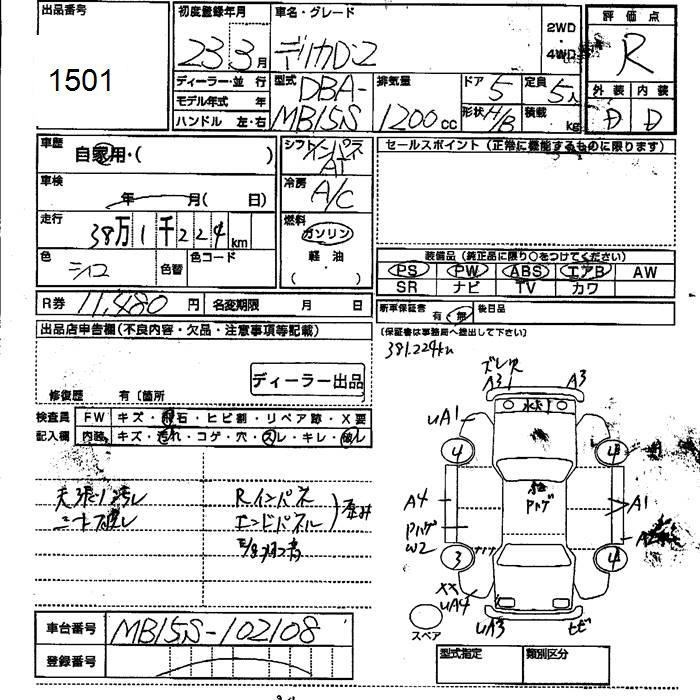 出品番号
1501
初度登録年月
23 3月
車名・グレード
デリカD:2
2WD
・
4WD
評価点
R
外装 内装
D D
ディーラー・並行
モデル年式 年
ハンドル 左・右
型式
DBA-
MB15S
排気量
1200cc
ドア 5
形状 H/B
定員 5人
積載 kg
車歴
自家用・( )
車検
年 月( 日)
走行
38万1千224km
色
シロ
色替
色コード
シフト
インパネ
AT
冷房
A/C
燃料
ガソリン
軽油
( )
セールスポイント(正常に機能するものに限ります)
装備品(純正品に限り○をつけてください)
PS PW ABS エアB AW
SR ナビ TV カワ
R券 11,480円
名変期限 月 日
新車保証書 有・無
後日品
(保証書は事務局へ提出して下さい)
381.224km
出品店申告欄(不良内容・欠品・注意事項等記載)
ディーラー出品
修復歴 有〔箇所
検査員
記入欄
FW キズ・飛石・ヒビ割・リペア跡・X要
内装 キズ・汚れ・コゲ・穴・スレ・キレ・破レ
天張り汚レ
シート破レ
Rインパネ
エンドパネル
ズレ
A3 A3
UA1
4 4
A4 A1
Pハゲ
W2
Pハゲ
3 4
A2
XX
UA4
UA3
ヒビ
スペア
車台番号 MB15S-102108
登録番号
型式指定 類別区分